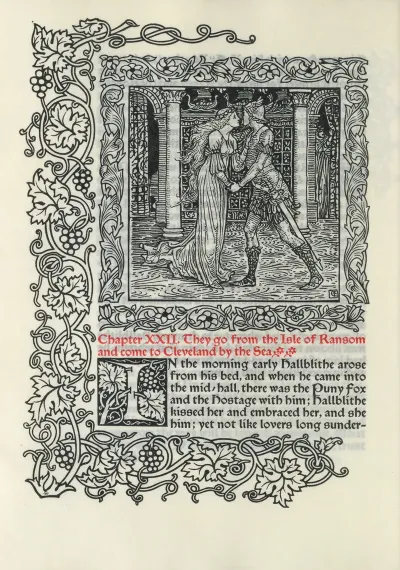 Chapter XXII. They go from the Isle of Ransom
and come to Cleveland by the Sea.
IN the morning early Hallblithe arose
from his bed, and when he came into
the mid-hall, there was the Puny Fox
and the Hostage with him; Hallblithe
kissed her and embraced her, and she
him; yet not like lovers long sunder-